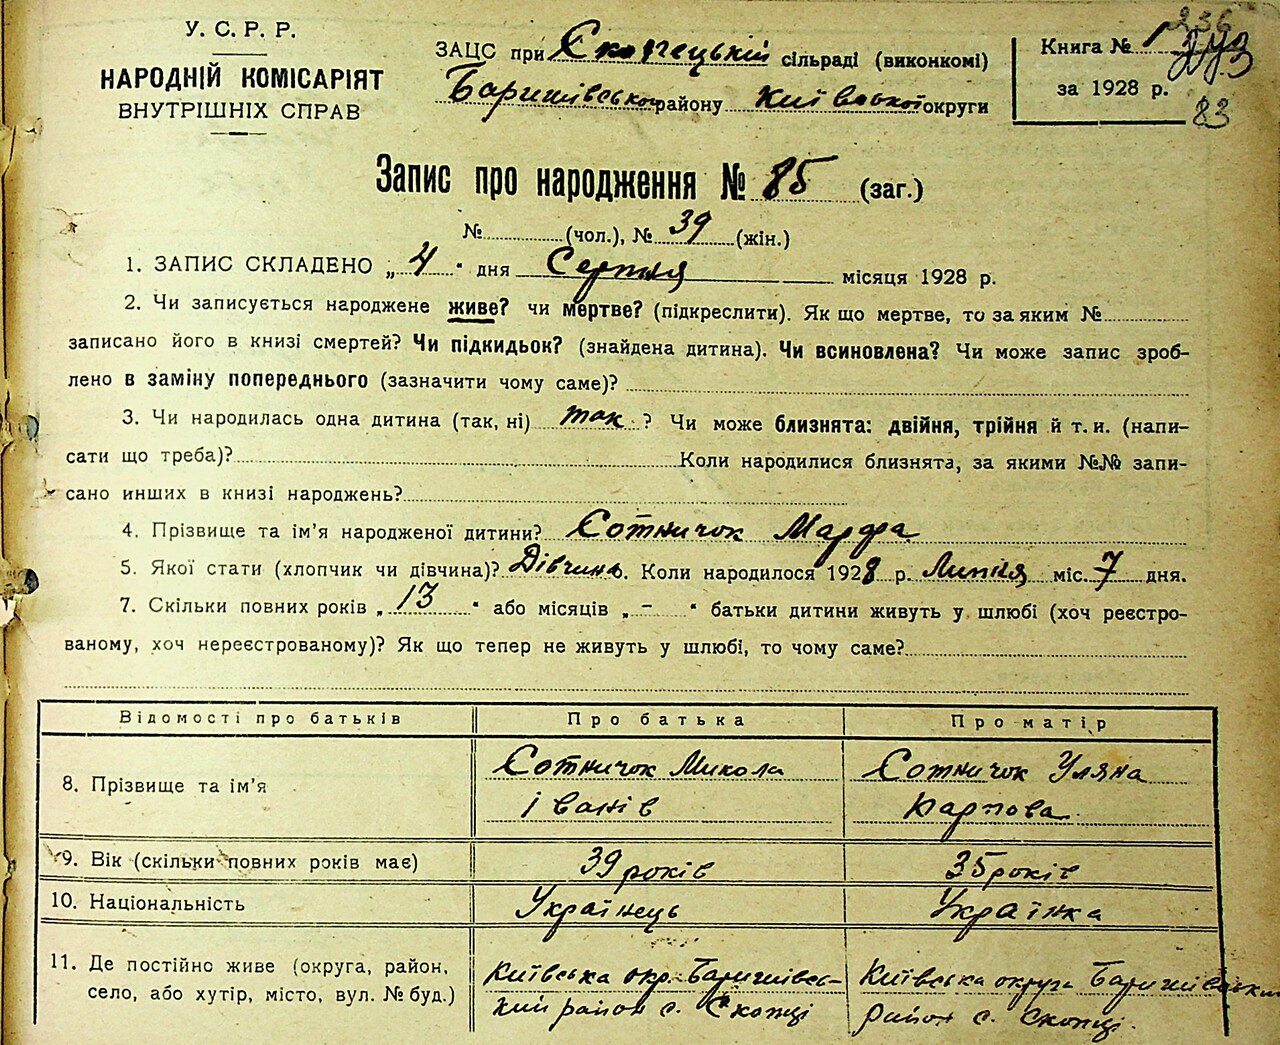 У. С. Р. Р.
НАРОДНІЙ КОМІСАРІЯТ
ВНУТРІШНІХ СПРАВ
ЗАЦС при Скопецькій сільраді (виконкомі)
Баришівського району Київської округи
Книга № 1
за 1928 р.
236
83
Запис про народження № 85 (заг.)
№ (чол.), № 39 (жін.)
1. ЗАПИС СКЛАДЕНО „ 4 " дня Серпня місяця 1928 р.
2. Чи записується народжене живе? чи мертве? (підкреслити). Як що мертве, то за яким №
записано його в книзі смертей? Чи підкидьок? (знайдена дитина). Чи всиновлена? Чи може запис зроб-
лено в заміну попереднього (зазначити чому саме)?
3. Чи народилась одна дитина (так, ні) так ? Чи може близнята: двійня, трійня й т. и. (напи-
сати що треба)? Коли народилися близнята, за якими №№ запи-
сано инших в книзі народжень?
4. Прізвище та ім'я народженої дитини? Сотничок Марфа
5. Якої стати (хлопчик чи дівчина)? Дівчина. Коли народилося 1928 р. Липня міс. 7 дня.
7. Скільки повних років „ 13 " або місяців „ - " батьки дитини живуть у шлюбі (хоч реєстро-
ваному, хоч нереєстрованому)? Як що тепер не живуть у шлюбі, то чому саме?
Відомості про батьків Про батька Про матір
8. Прізвище та ім'я Сотничок Микола Іванів Сотничок Уляна Карпова
9. Вік (скільки повних років має) 39 років 35 років
10. Національність Українець Українка
11. Де постійно живе (округа, район, село, або хутір, місто, вул. № буд.)
Київська окр. Баришівсь-
кий район с. Скопці
Київська округа Баришівський
район с. Скопці.